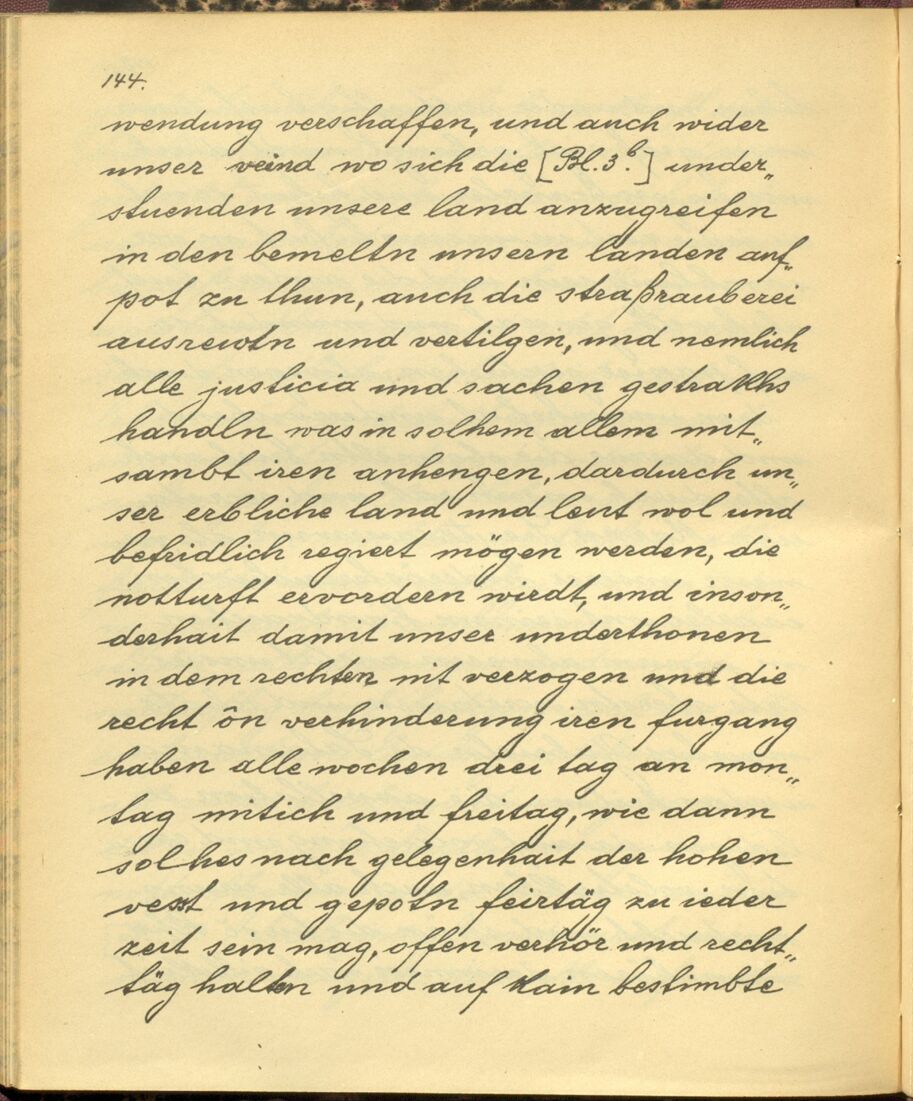 144.
wendung verschaffen, und auch wider
unser veind wo sich die [Bl. 3b.] under„
stuenden unsere land anzugreifen
in den bemeltn unsern landen auf„
pot zu thun, auch die straßrauberei
ausrewtn und vertilgen, und nemlich
alle justicia und sachen gestrakhs
handln was in solhem allem mit„
sambt iren anhengen, dardurch un„
ser erbliche land und leut wol und
befridlich regiert mögen werden, die
notturft ervordern wirdt, und inson„
derhait damit unser underthonen
in dem rechten nit verzogen und die
recht ôn verhinderung iren furgang
haben alle wochen drei tag an mon„
tag mitich und freitag, wie dann
solhes nach gelegenhait der hohen
vest und gepotn feirtäg zu ieder
zeit sein mag, offen verhör und recht„
täg halten und auf kain bestimbte